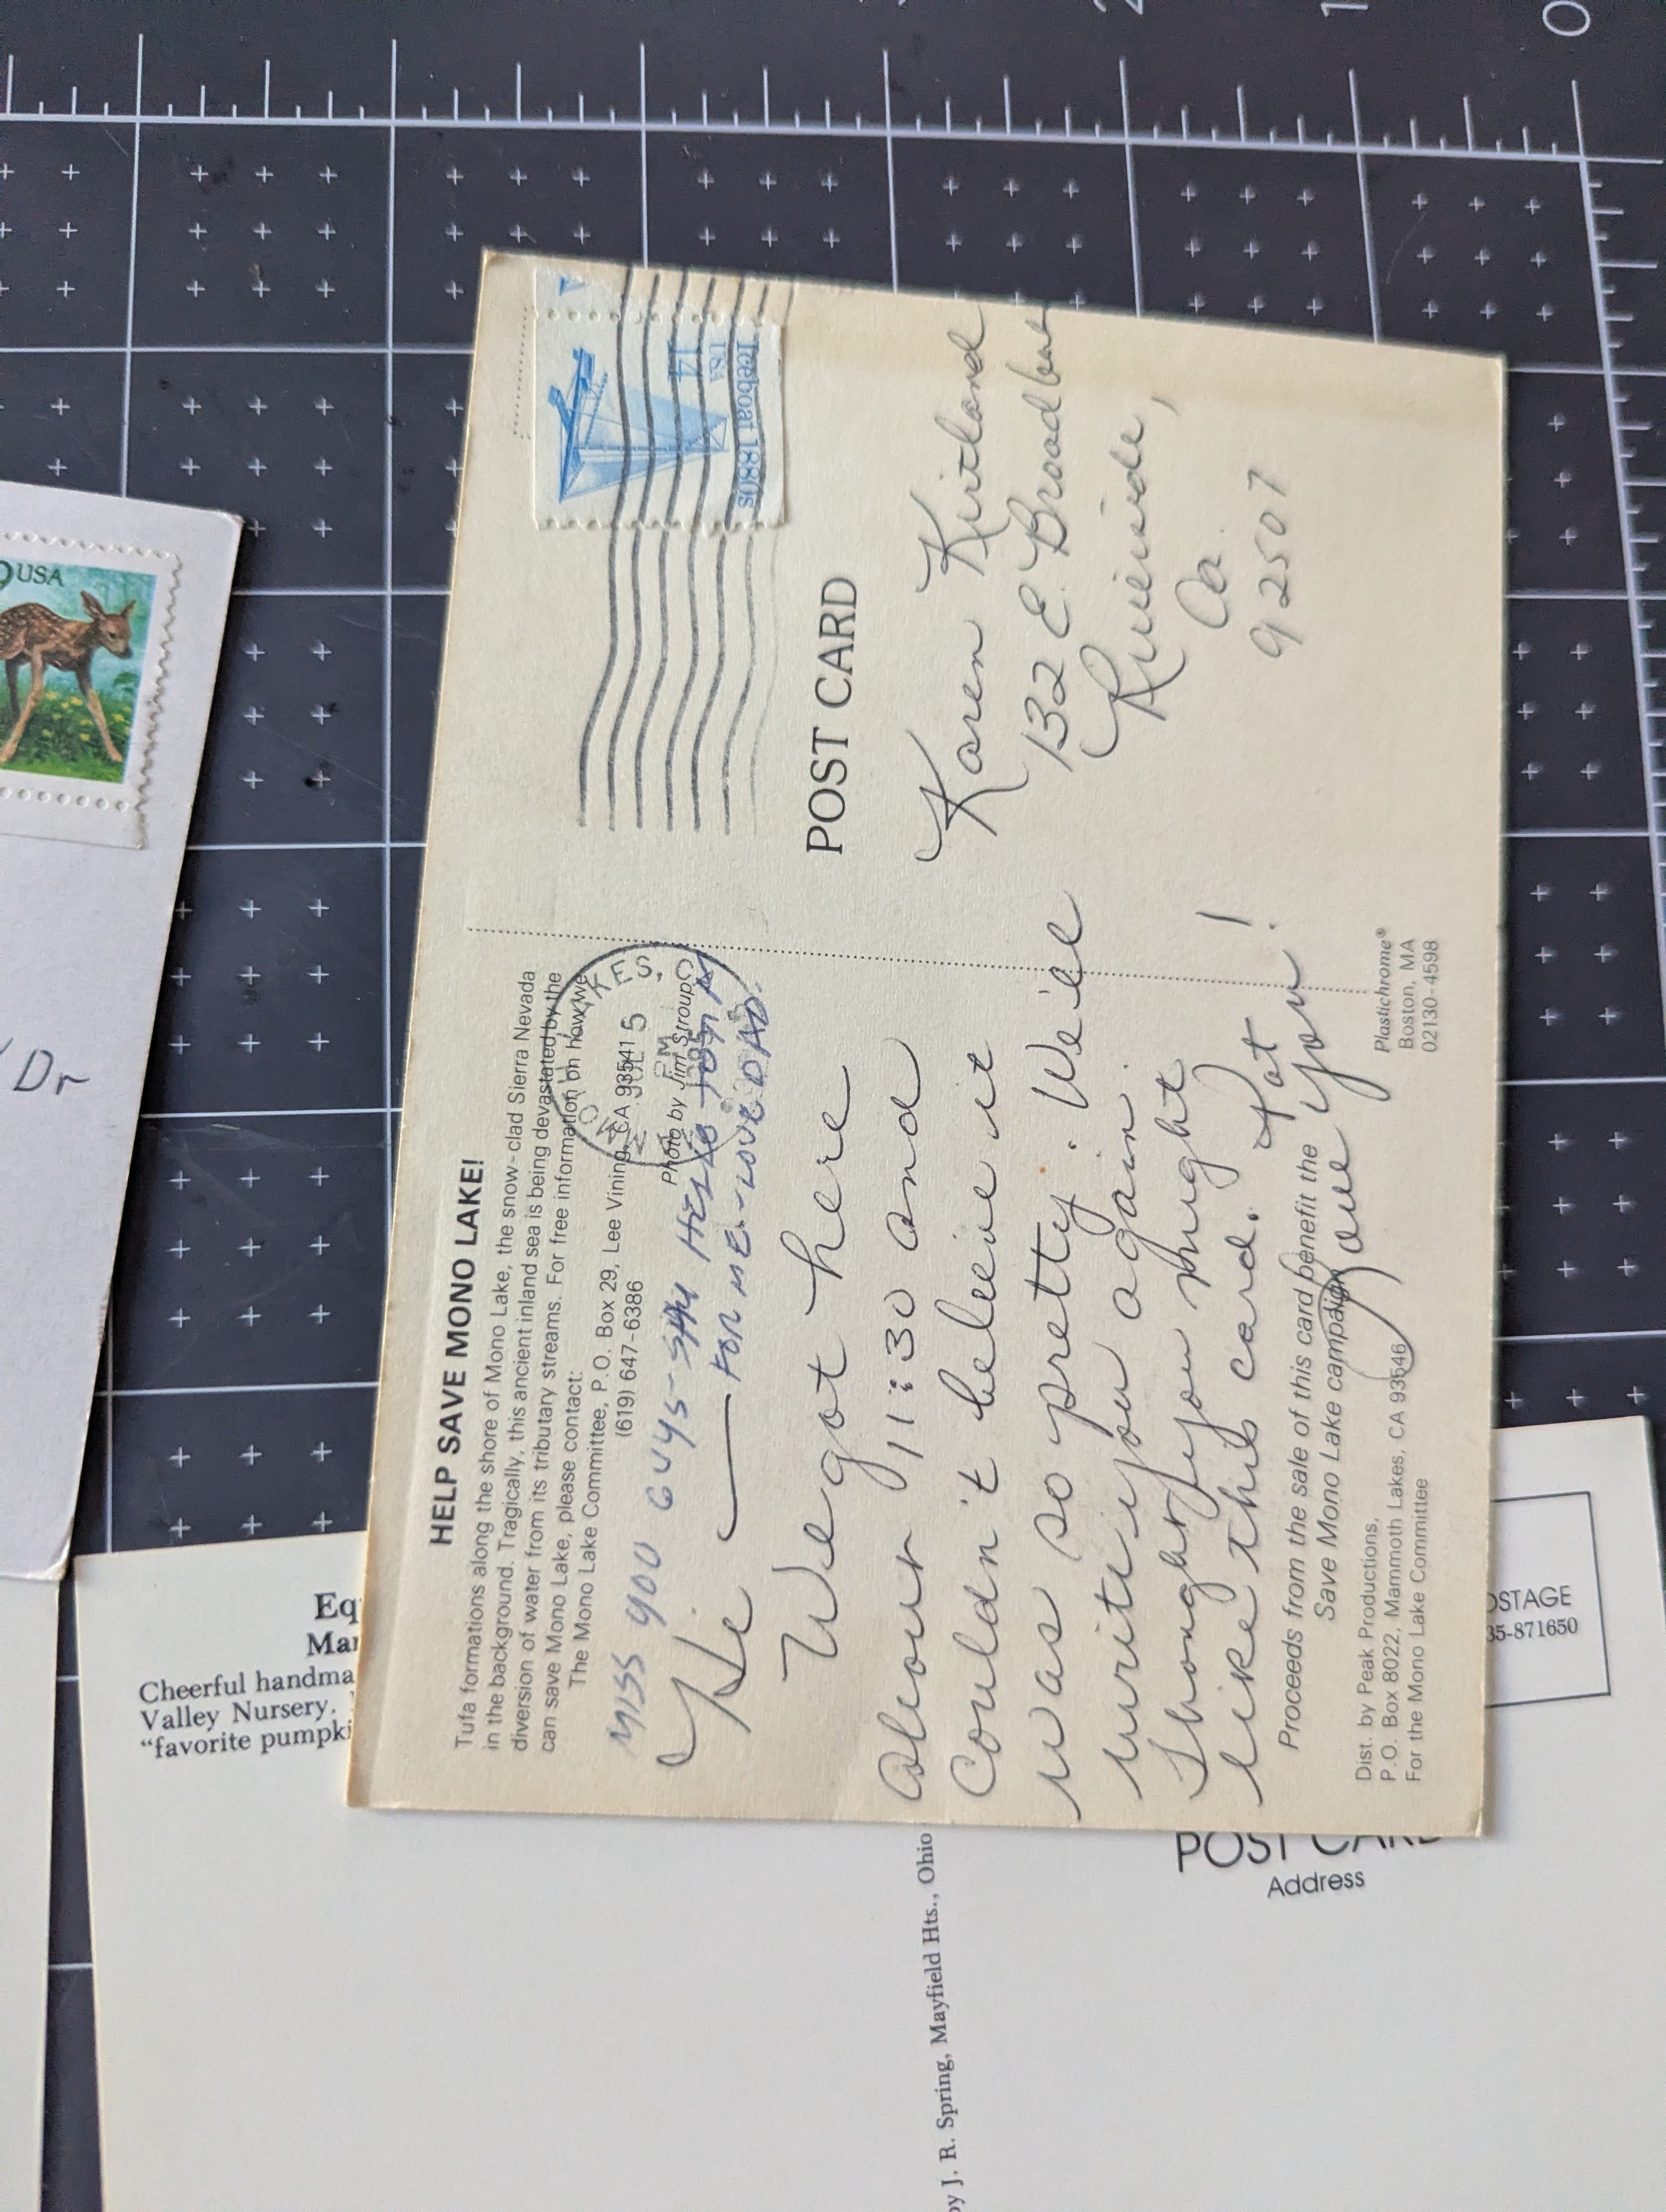 HELP SAVE MONO LAKE!
Tufa formations along the shore of Mono Lake, the snow-clad Sierra Nevada
in the background. Tragically, this ancient inland sea is being devastated by the
diversion of water from its tributary streams. For free information on how we
can save Mono Lake, please contact:
The Mono Lake Committee, P.O. Box 29, Lee Vining, CA 93541
(619) 647-6386
Photo by Jim Stroup
MISS YOU GUYS - SAY HELLO TO
FOR ME. - LOVE DAD.
Hi —
We got here
about 11:30 and
Couldn't believe it
was so pretty. We'll
write you again.
Thought you might
like this card. Pat
Love you!
Proceeds from the sale of this card benefit the
Save Mono Lake campaign
Dist. by Peak Productions,
P.O. Box 8022, Mammoth Lakes, CA 93546
For the Mono Lake Committee
Plastichrome®
Boston, MA
02130-4598
KES, C
JUL 15
PM
POST CARD
Iceboat 1880s
USA
14
Karen Kirtland
132 E. Broadbent
Riverside,
Ca.
92507
USA
Dr
Eq
Mar
Cheerful handma
Valley Nursery.
"favorite pumpki
by J. R. Spring, Mayfield Hts., Ohio
POST CARD
Address
OSTAGE
35-871650
2
1
0